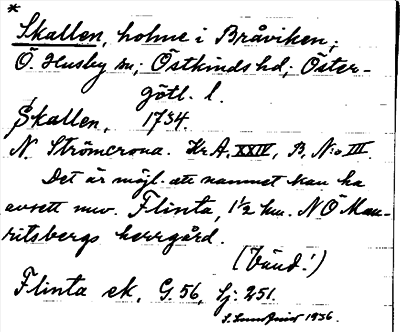 *
Skallen, holme i Bråviken;
Ö. Husby sn; Östkinds hd; Öster-
götl. l.
Skallen, 1734.
N. Strömcrona. Kr A, XXIV, B, N:o III.
Det är möjl. att namnet kan ha
avsett nuv. Flinta, 1½ km. NÖ Mau-
ritsbergs herrgård.
(Vänd!)
Flinta ek. G. 56, Sj: 251.
1936.